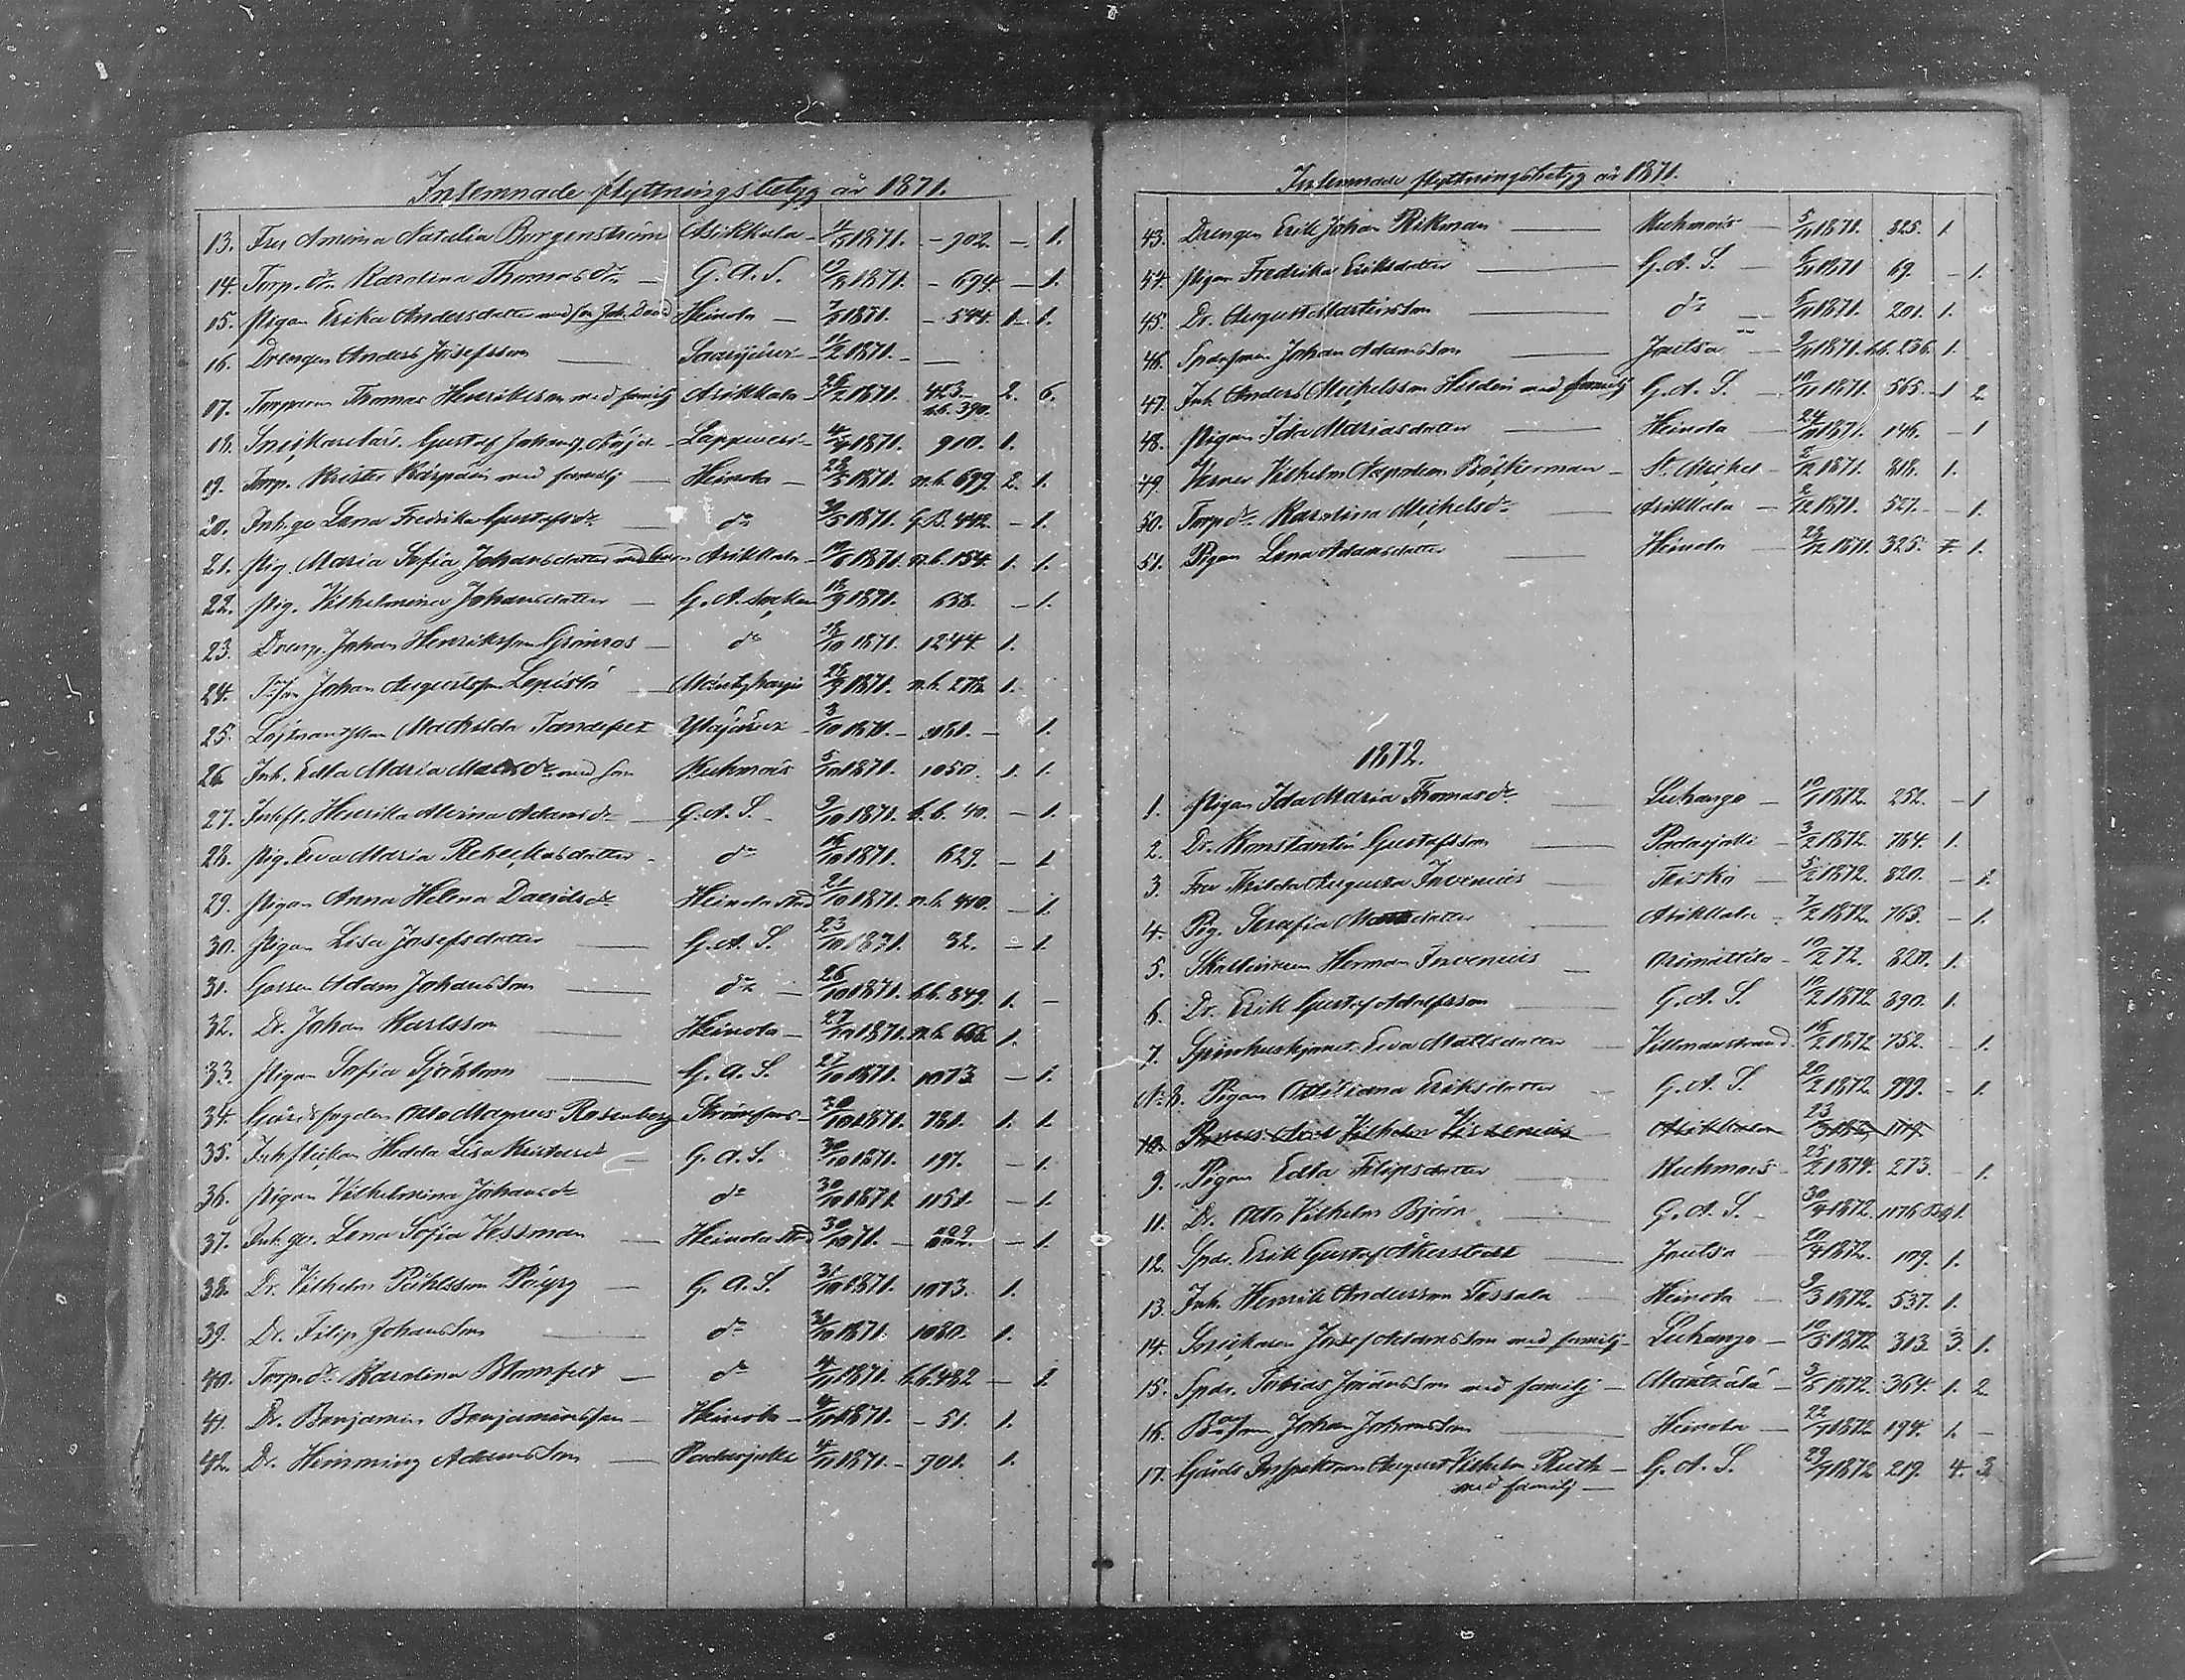 Inlemnade flyttningsbetyg år 1871.
13. Fru Amanda Natalia Borgenström Asikkala - 4/3 1871. - 902. - 1.
14. Torp. dr. Karolina Thomasdr. - G. A. S. 1871. - 694. - 1.
15. Pigan Erika Andersdatter med son Joh. David Heinola - 1871. - 544. 1. - 1.
16. Drengen Anders Josefsson - Saarijärvi - 1/2 1871. - -
17. Torparen Thomas Henriksson med familj Asikkala - 1871. 423. - n.b. 390. 2. 6.
18. Gustaf Johansson Lappvesi - 4/4 1871. 910. 1.
19. Torp. Krister med familj - Heinola - 1871. n.b. 699. 2. 1.
20. Inh.ge Lena Fredrika Gustafsdr. - dr. 1871. 442. - 1.
21. Pig. Maria Sofia Johansdatter med barn Asikkala - 1871. n.b. 154. 1. 1.
22. Pig. Vilhelmina Johansdatter - G. A. Socken 18/9 1871. 638. - 1.
23. Dreng. Johan Henriksson Grönroos - dr. 18/10 1871. 1244. 1.
24. Johan Augustsson Lepistö - Mäntyharju 28/9 1871. n.b. 278. 1.
25. Mathilda Tandefelt 3/10 1871. - 1061. - 1.
26. Inh. Edla Maria Matsdr. med son Kuhmois 5/10 1871. 1050. 1. 1.
27. Inhfl. Henrika Alvina Adamsdr. - G. A. S. - 9/10 1871. b.b. 40. - 1.
28. Pig. Eva Maria - dr. 16/10 1871. 629. - 1
29. Pigan Anna Helena Davidsdr. Heinola stad 21/10 1871. n.b. 410. - 1.
30. Pigan Lisa Josefsdatter - G. A. S. 23/10 1871. 32. - 1
31. Gossen Adam Johansson - dr. - 26/10 1871. b.b. 849. 1. -
32. Dr. Johan Karlsson - Heinola - 27/10 1871. n.b. 666. 1.
33. Pigan Sofia Sjöblom - G. A. S. 27/10 1871. 1073 - 1.
34. Gårdsfogden Otto Magnus Rosenberg Strömfors - 30/10 1871. 781. 1. 1.
35. Inhflickan Hedda Lisa - G. A. S. 30/10 1871. 197. - 1.
36. Pigan Vilhelmina Johansdr. dr. 30/10 1871. 1151. - 1.
37. Inh.ge. Lena Sofia Vessman - Heinola stad 30/10 71. - - 1.
38. Dr. Vilhelm - G. A. S. 31/10 1871. 1073. 1.
39. Dr. Filip Johansson - dr. 31/10 1871. 1080. 1.
40. Torp. dr. Karolina Blomfelt - dr. 4/11 1871. b.b. 482 - 1.
41. Dr. Benjamin Benjaminsson - Heinola - 4/11 1871. - 51. 1.
42. Dr. Hemming Adamsson - Padasjoki 4/11 1871. - 901. 1.
Inlemnade flyttningsbetyg år 1871.
43. Drengen Erik Johan Rikman - Kuhmois - 5/11 1871. 825. 1.
44. Pigan Fredrika Eriksdatter - G. A. S. - 6/11 1871 69. - 1.
45. Dr. August Martinsson - dr. - 6/11 1871. 201. 1.
46. Johan Adamsson - Joutsa - 9/11 1871. b.b. 236. 1.
47. Inh Anders Michelsson Helden med familj G. A. S. - 10/11 1871. 565. - 1 2
48. Pigan Ida Mariasdatter - Heinola - 24/11 1871. 146. - 1
49. Verner Vilhelm Napoleon Bäckerman - St. Michel - 1871. 818. 1.
50. Torpdr. Karolina Michelsdr. - Asikkala - 2/12 1871. 527. - 1.
51. Pigan Lena Adamsdatter - Heinola - 23/12 1871. 325. 1.
1872.
1. Pigan Ida Maria Thomasdr. - Luhango - 10/1 1872. 252. - 1
2. Dr. Konstantin Gustafsson - Padasjoki - 3/2 1872. 764. 1.
3. Fru Hilda Augusta Invenius - Teisko - 5/2 1872. 820. - 1.
4. Pig. Serafia Mattsdatter - Asikkala - 7/2 1872. 763. - 1.
5. Herman Invenius - Orimattila - 10/2 72. 820. 1.
6. Dr. Erik Gustaf Adolfsson - G. A. S. 10/2 1872 890. 1.
7. Eva Mattsdatter - Villmanstrand. 16/2 1872 752. - 1.
No 8. Pigan Ottiliana Eriksdatter - G. A. S. 20/2 1872 999. - 1.
10. Vilhelm Asikkala 23
9. Pigan Edla Filipsdatter - Kuhmois - 25/2 1874. 273. - 1.
11. Dr. Otto Vilhelm Björn - G. A. S. - 30/4 1872. 1076 1.
12. Spdr. Erik Gustaf Åkerstedt - Joutsa - 20/4 1872. 109. 1.
13. Inh. Henrik Andersson Tossala - Heinola - 9/3 1872. 537. 1.
14. Josef Adamsson med familj - Luhango - 10/5 1872 313. 3. 1.
15. Spdr. Tobias Göransson med familj - Mäntsälä - 3/5 1872. 364. 1. 2
16. Johan Johansson - Heinola - 22/9 1872 194. 1. -
17. Gårds Inspektoren August Vilhelm Ruth - G. A. S. 29/9 1872 219. 4. 3
med familj -